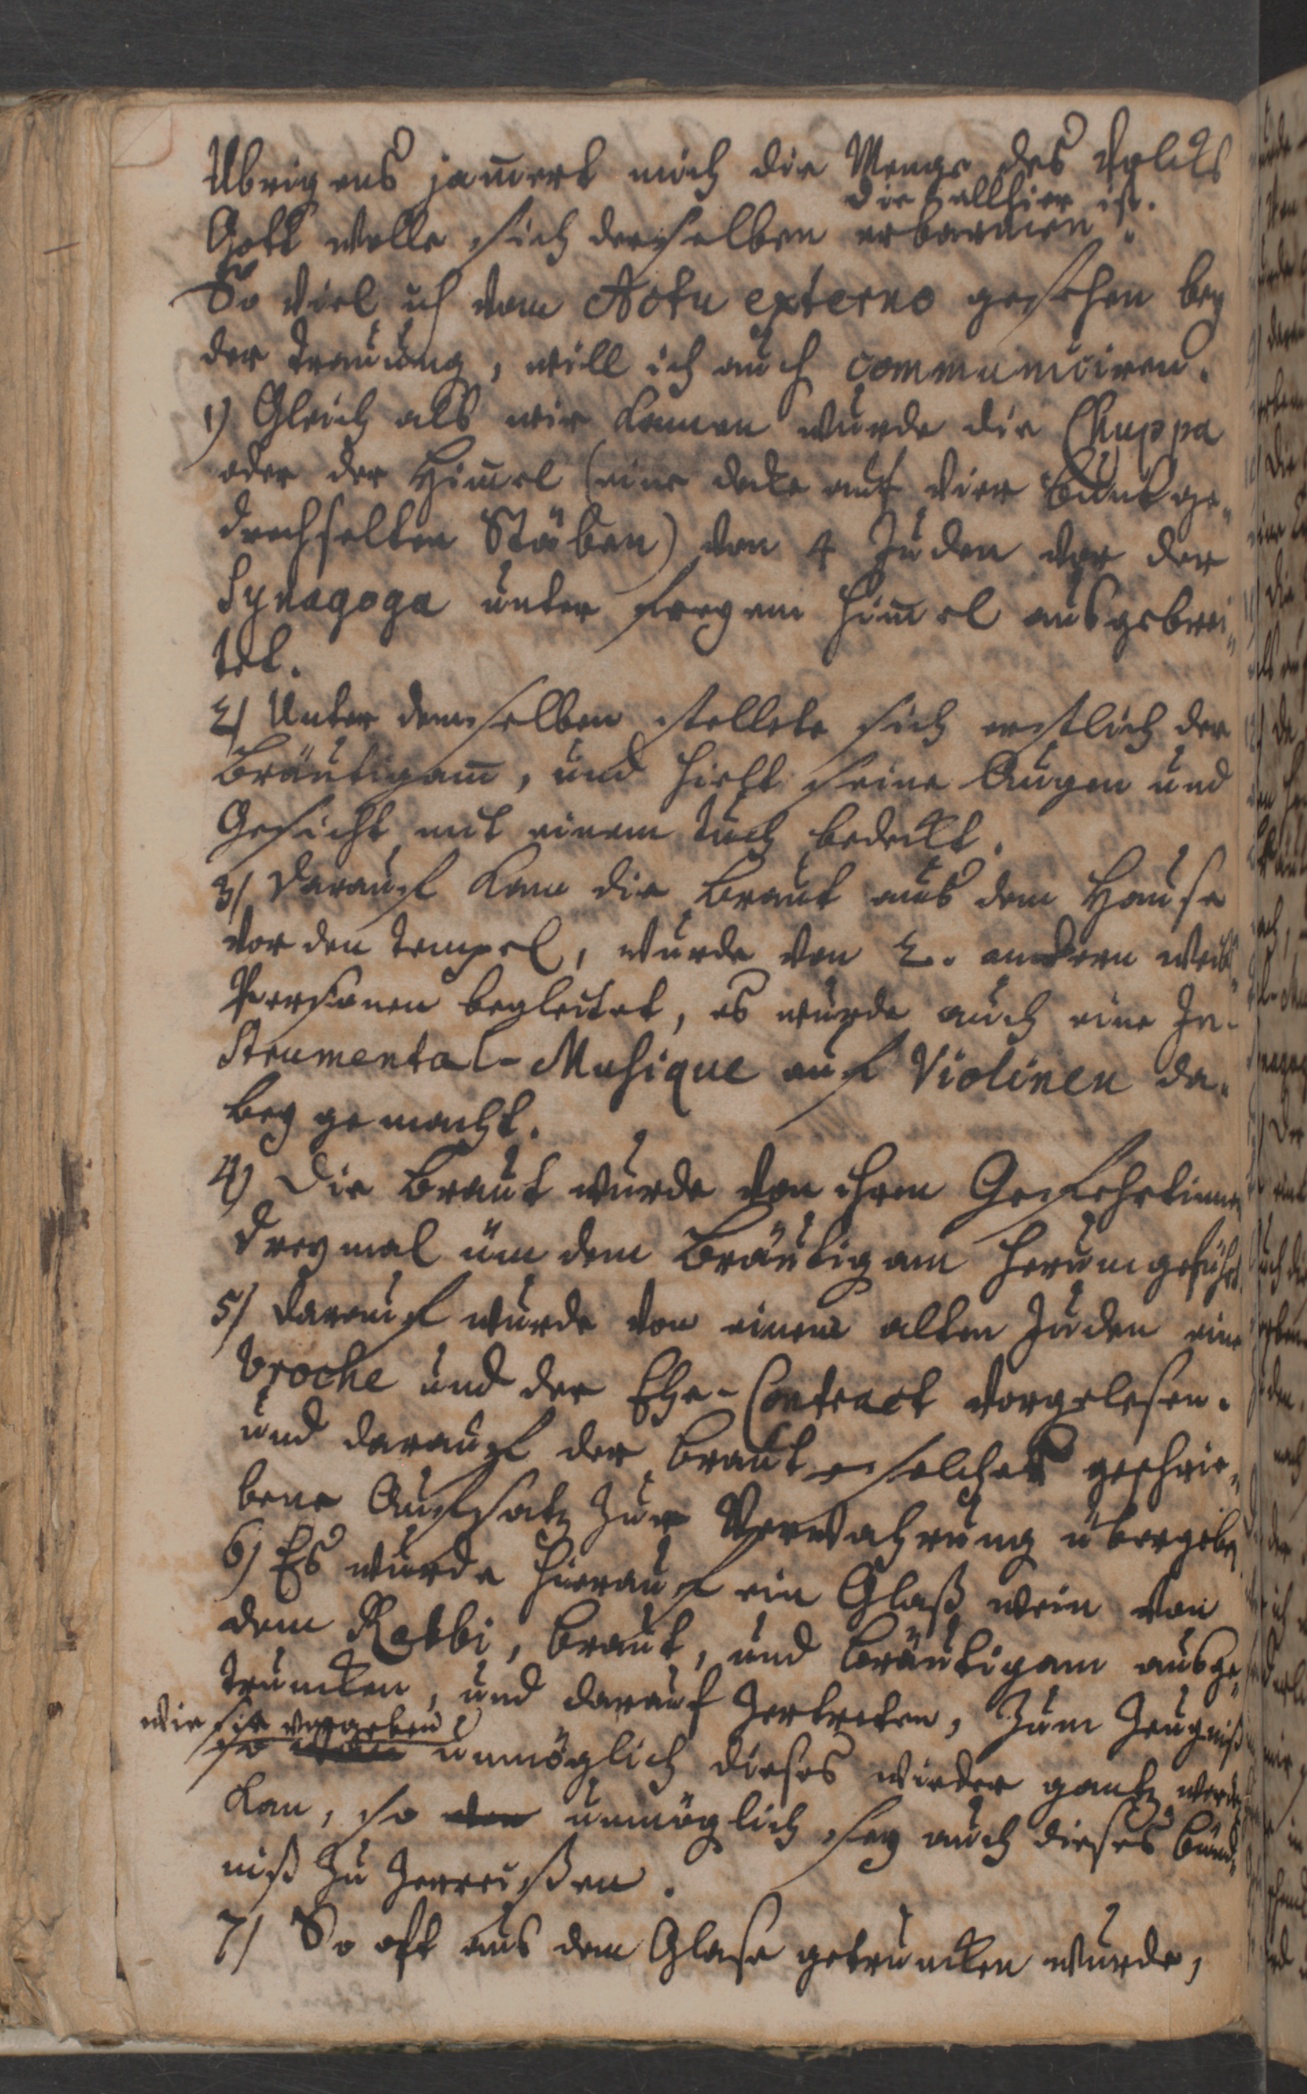 Übrigens jam̅ert mich die Menge des Volcks
die allhier ist.
Gott wolle sich derselben erbarmen.
So viel ich vom Actu externo gesehen bey
der Trauung, will ich auch communiciren.
1) Gleich als wir kamen wurde die Chuppa
oder der Him̅el (eine decke auf vier bunt ge„
drechselten Stäben) von 4 Juden vor der
Synagoga unter freyem Him̅el ausgebrei„
tet.
2/ Unter demselben stellete sich erstlich der
Bräutigam̅, und hielt seine Augen und
Gesicht mit einem Tuch bedeckt.
3/ Darauf kam die Braut aus dem Hause
vor den Tempel, wurde von 2. andern Weibs„
Personen begleitet, es wurde auch eine In-
strumental-Musique auf Violinen da„
bey gemacht.
4) Die Braut wurde von ihren Gefehrtinnen
dreymal üm dem Bräutigam herumgeführt
5/ Darauf wurde von einem alten Juden eine
Broche und der Ehe-Contract vorgelesen.
und darauf der Braut solcher geschrie„
bene Aufsatz zur Verwahrung übergeben
6) Es wurde hierauf ein Glaß wein von
dem Rabbi, Braut, und Bräutigam ausge„
truncken, und darauf zertreten, zum Zeugniß
wie sie vorgeben
so unmöglich dieses wieder gantz werden
kan, so unmöglich sey auch dieses Bünd„
niß zu zerreißen.
7/ So oft aus dem Glase getruncken wurde,